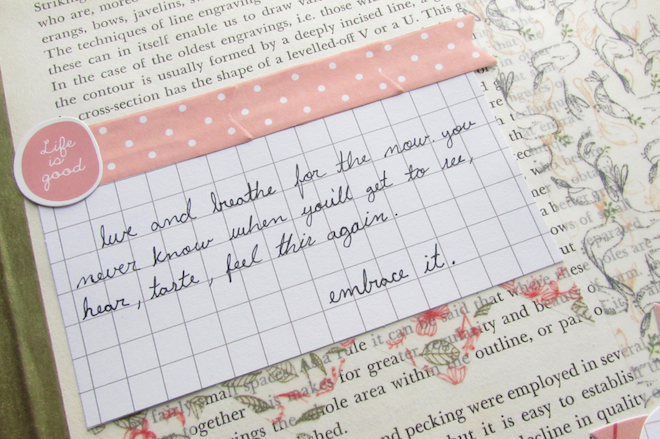 Striking
who are, more
erangs, bows, javelins, s
The techniques of line engraving
these can in itself enable us to draw
In the case of the oldest engravings, i.e. those
the contour is usually formed by a deeply incised line, a
cross-section has the shape of a levelled-off V or a U. This
Life
is
good
live and breathe for the now. you
never know when you'll get to see,
hear, taste, feel this again.
embrace it.
rule it can be said that where these
for greater and
hole area within the outline, or part
together
and pecking were employed in several
but it is easy to establish
decline in quality